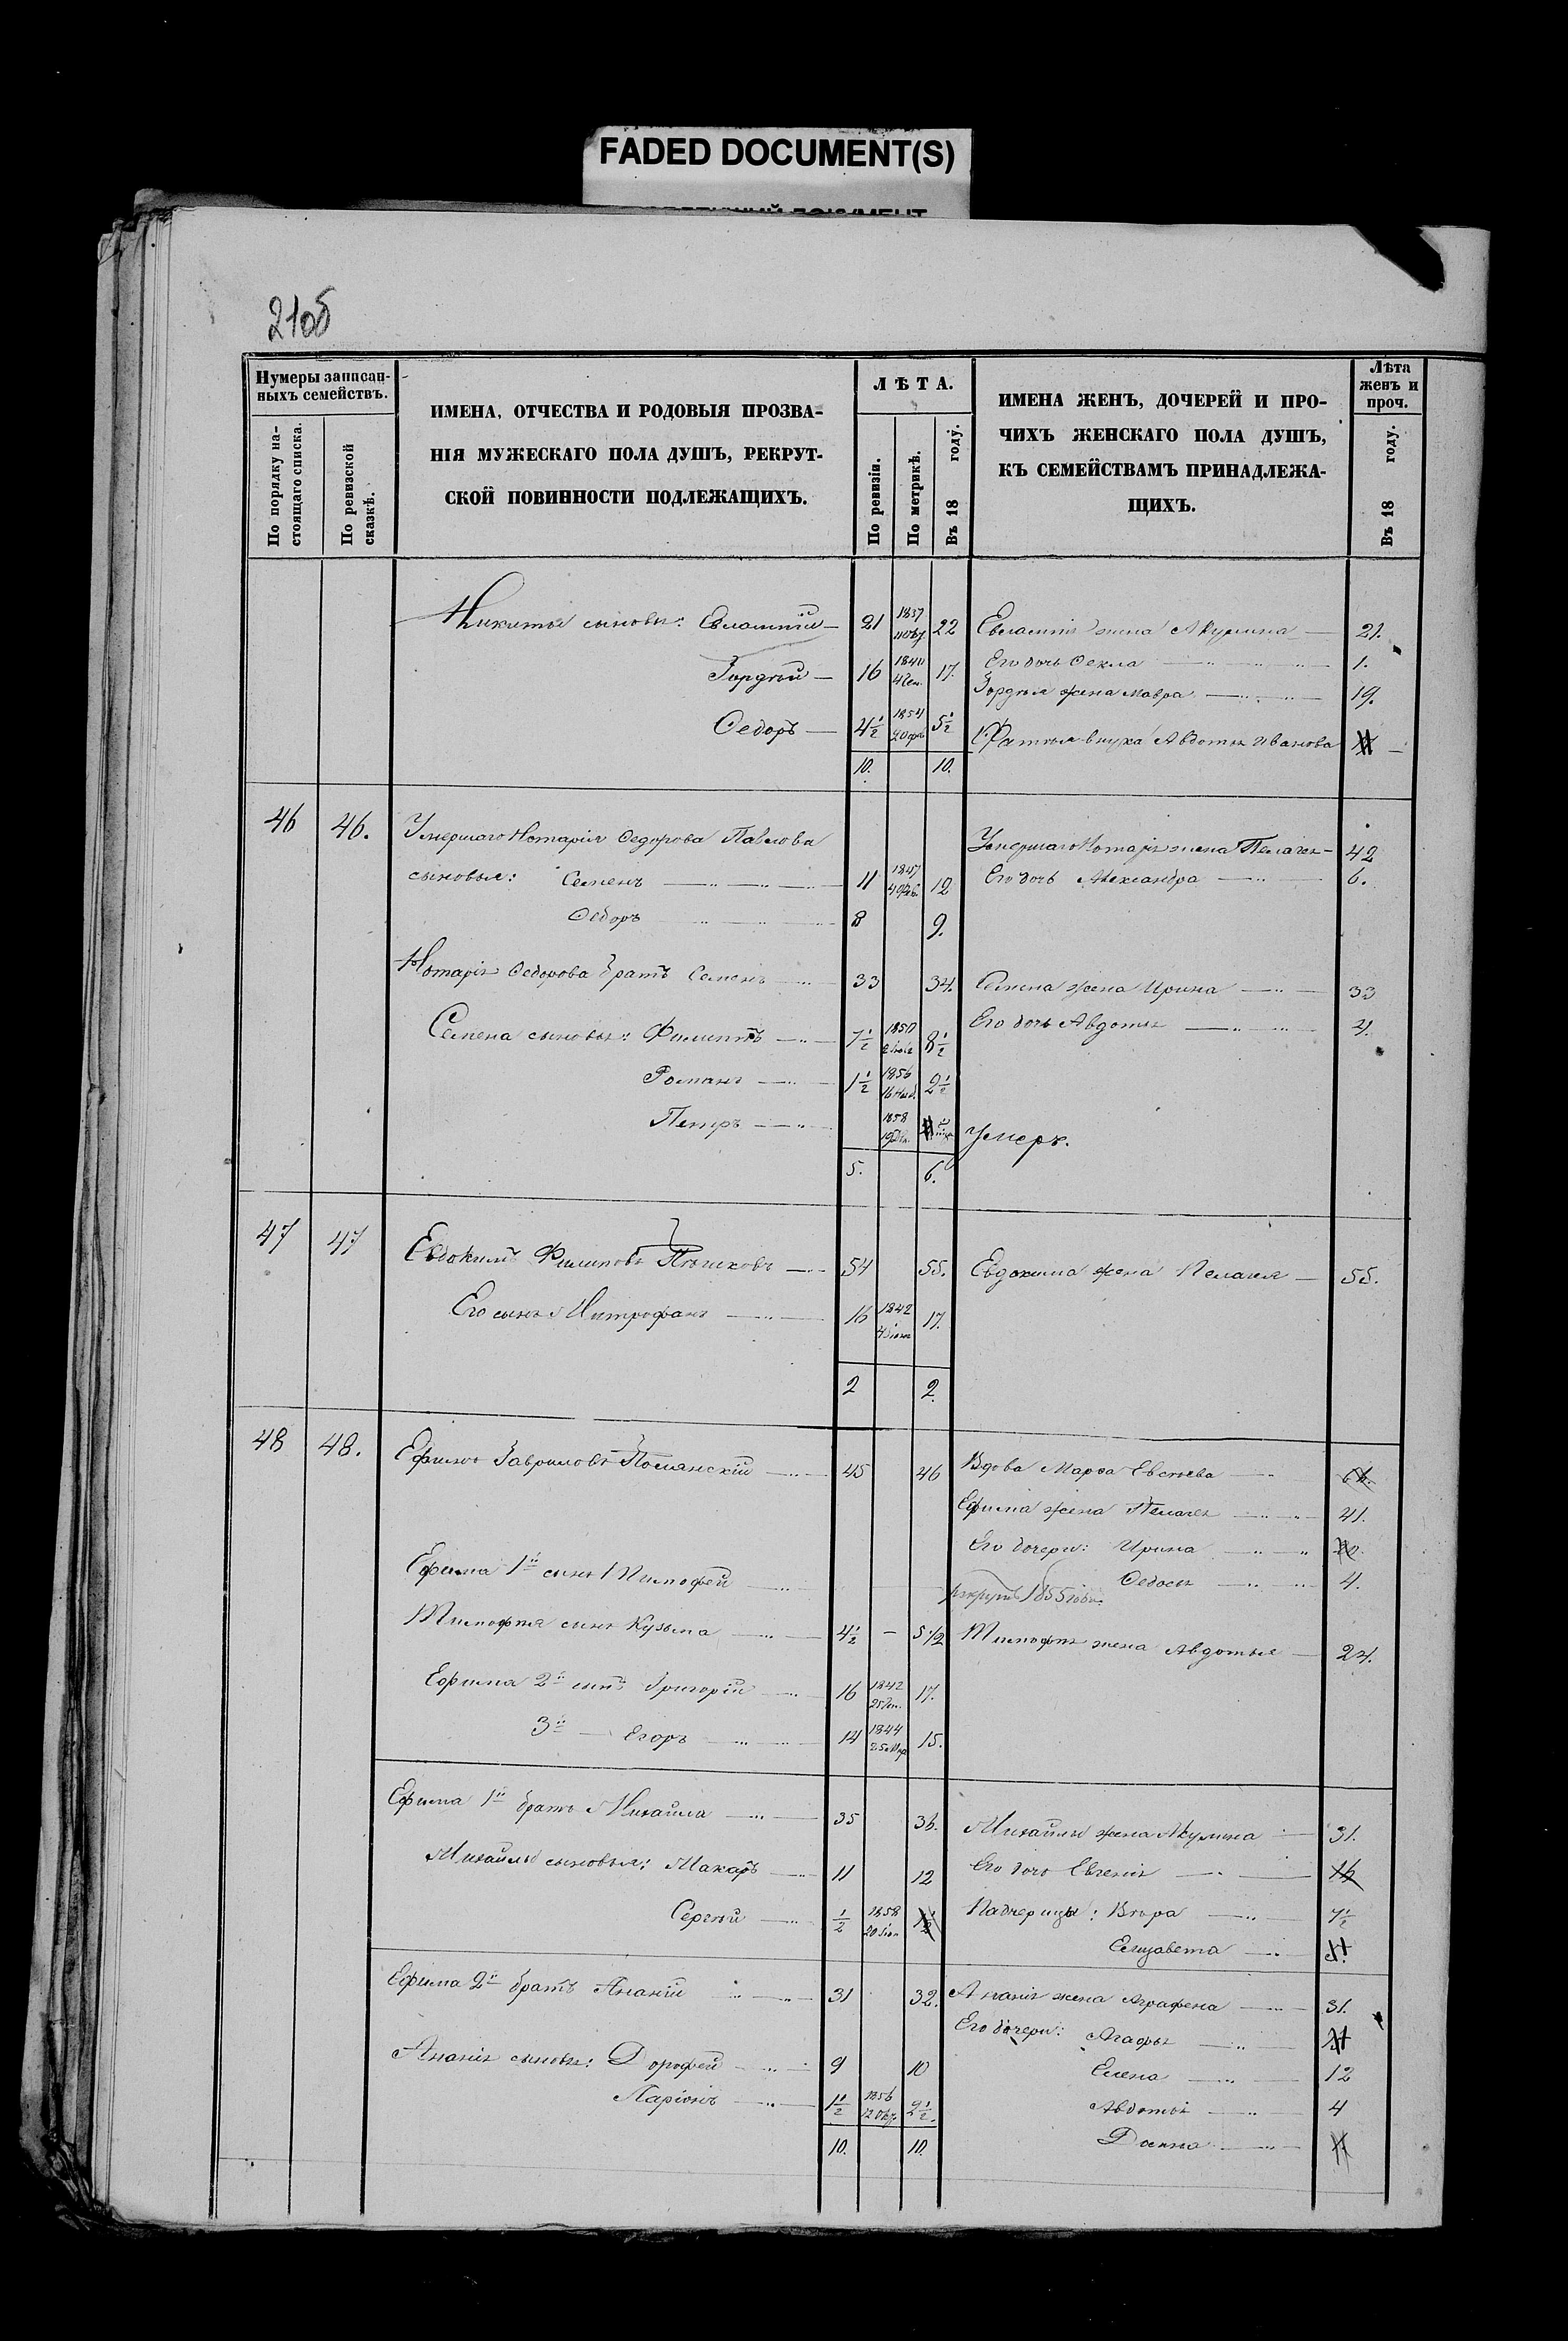 FADED DOCUMENT(S)
210б
Нумеры записан-
ныхъ семействъ.
По порядку на-
стоящаго списка.
По ревизской
сказкѣ.
ИМЕНА, ОТЧЕСТВА И РОДОВЫЯ ПРОЗВА-
НІЯ МУЖЕСКАГО ПОЛА ДУШЪ, РЕКРУТ-
СКОЙ ПОВИННОСТИ ПОДЛЕЖАЩИХЪ.
ЛѢТА.
По ревизіи.
По метрикѣ.
Въ 18 году.
ИМЕНА ЖЕНЪ, ДОЧЕРЕЙ И ПРО-
ЧИХЪ ЖЕНСКАГО ПОЛА ДУШЪ,
КЪ СЕМЕЙСТВАМЪ ПРИНАДЛЕЖА-
ЩИХЪ.
Лѣта
женъ и
проч.
Въ 18 году.
Никиты сыновья: Евлампій 21 1837 22 Евлампія жена Акулина 21.
Его дочь Фекла 1.
Гордѣй 16 17. Гордѣя жена Мавра 19.
Федоръ 4½ 1854 5½ внука Авдотья Иванова
10. 10.
46 46. Умершаго Федорова Павлова
Умершаго жена Пелагея 42
сыновья: Семенъ 11 1847 12 Его дочь Александра 6.
Федоръ 8 9.
Федорова братъ Семенъ 33 34. Семена жена Ирина 33
Семена сыновья: Филиппъ 7½ 8½ Его дочь Авдотья 4.
Романъ 1½ 1856 2½
Петръ 1858 Умеръ.
5. 6.
47 47 Евдокимъ Филиповъ 54 55. Евдокима жена Пелагея 55.
Его сынъ Митрофанъ 16 1842 17.
2 2.
48 48. Ефимъ Гавриловъ Полянскій 45 46 Вдова Марфа
Ефима жена Пелагея 41.
Его дочери: Ирина
Ефима 1й сынъ Тимофей рекрутъ 1855 года.
Федосья 4.
Тимофея сынъ Кузьма 4½ — 5½ Тимофея жена Авдотья 24.
Ефима 2й сынъ Григорій 16 1842 17.
3й — Егоръ 14 1844 15.
Ефима 1й братъ Михайла 35 36. Михайлы жена Акулина 31.
Михайлы сыновья: Макаръ 11 12 Его дочь Евгенія
Сергѣй ½ 1858 Падчерицы: Вѣра 7½
Елизавета
Ефима 2й братъ Ананій 31 32. Ананія жена Аграфена 31.
Его дочери: Агафья
Ананія сыновья: Дорофей 9 10 Елена 12
Ларіонъ 1½ 1856 2½. Авдотья 4
10. 10. Домна